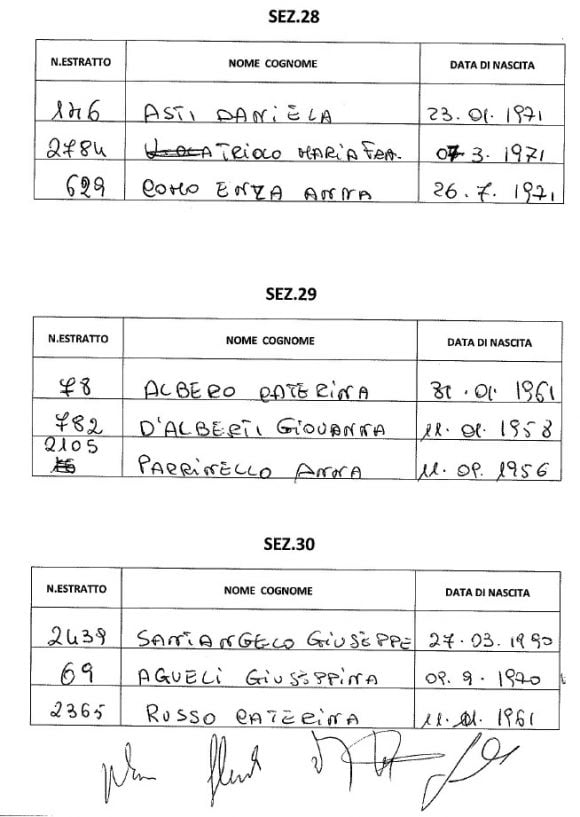 SEZ.28
N.ESTRATTO NOME COGNOME DATA DI NASCITA
176 ASTI DANIELA 23.01.1971
2784 TRIOLO MARIA FRA. 3.1971
629 COMO ENZA ANNA 26.7.1971
SEZ.29
N.ESTRATTO NOME COGNOME DATA DI NASCITA
78 ALBERO CATERINA 31.01.1961
782 D'ALBERTI GIOVANNA 11.01.1958
2105 PARRINELLO ANNA 11.09.1956
SEZ.30
N.ESTRATTO NOME COGNOME DATA DI NASCITA
2439 SANTANGELO GIUSEPPE 27.03.1990
69 AGUELI GIUSEPPINA 09.9.1970
2365 RUSSO CATERINA 11.1961